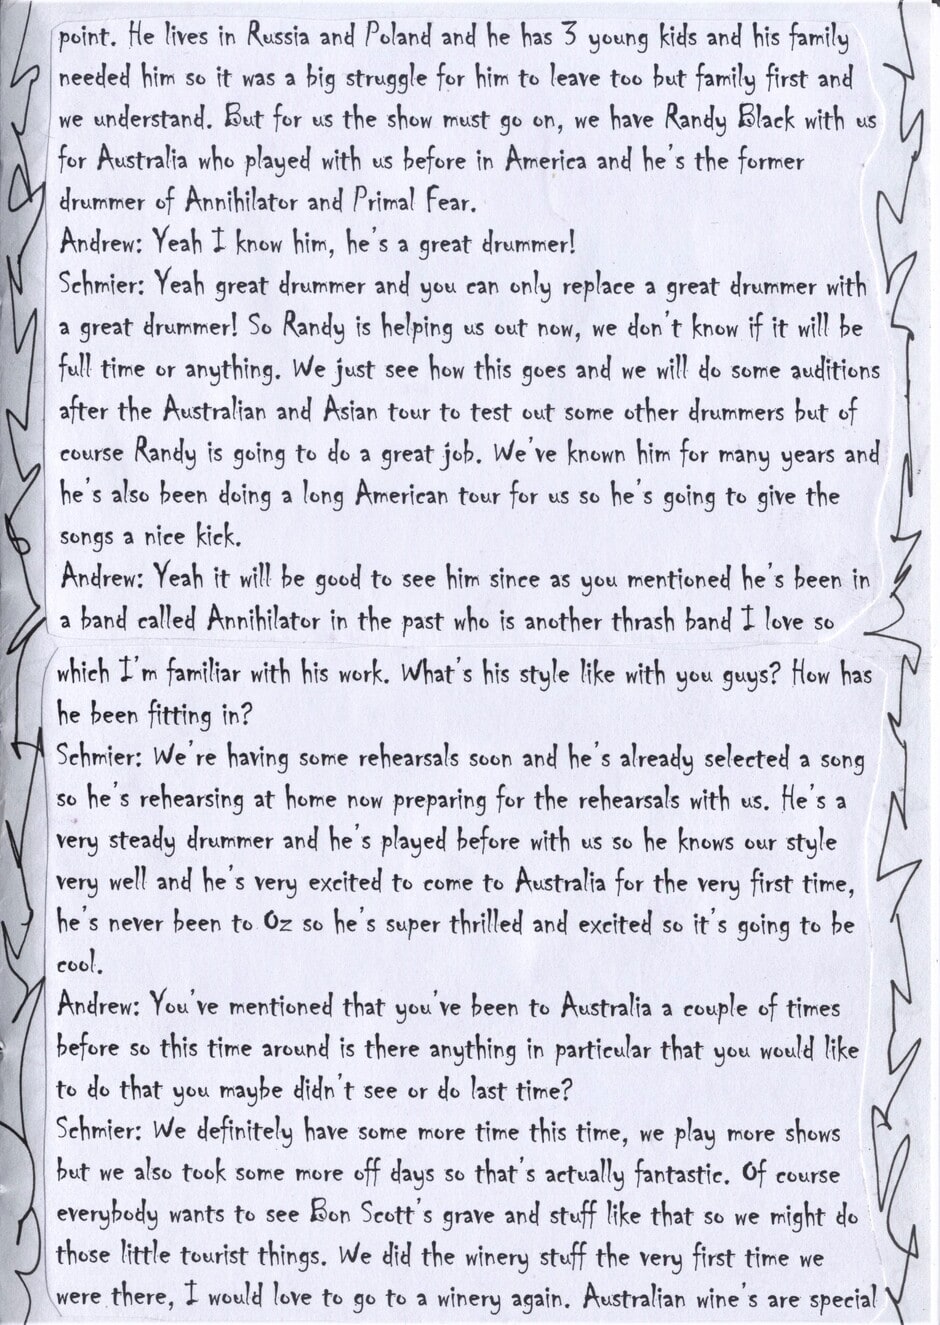 point. He lives in Russia and Poland and he has 3 young kids and his family
needed him so it was a big struggle for him to leave too but family first and
we understand. But for us the show must go on, we have Randy Black with us
for Australia who played with us before in America and he's the former
drummer of Annihilator and Primal Fear.
Andrew: Yeah I know him, he's a great drummer!
Schmier: Yeah great drummer and you can only replace a great drummer with
a great drummer! So Randy is helping us out now, we don't know if it will be
full time or anything. We just see how this goes and we will do some auditions
after the Australian and Asian tour to test out some other drummers but of
course Randy is going to do a great job. We've known him for many years and
he's also been doing a long American tour for us so he's going to give the
songs a nice kick.
Andrew: Yeah it will be good to see him since as you mentioned he's been in
a band called Annihilator in the past who is another thrash band I love so
which I'm familiar with his work. What's his style like with you guys? How has
he been fitting in?
Schmier: We're having some rehearsals soon and he's already selected a song
so he's rehearsing at home now preparing for the rehearsals with us. He's a
very steady drummer and he's played before with us so he knows our style
very well and he's very excited to come to Australia for the very first time,
he's never been to Oz so he's super thrilled and excited so it's going to be
cool.
Andrew: You've mentioned that you've been to Australia a couple of times
before so this time around is there anything in particular that you would like
to do that you maybe didn't see or do last time?
Schmier: We definitely have some more time this time, we play more shows
but we also took some more off days so that's actually fantastic. Of course
everybody wants to see Bon Scott's grave and stuff like that so we might do
those little tourist things. We did the winery stuff the very first time we
were there, I would love to go to a winery again. Australian wine's are special